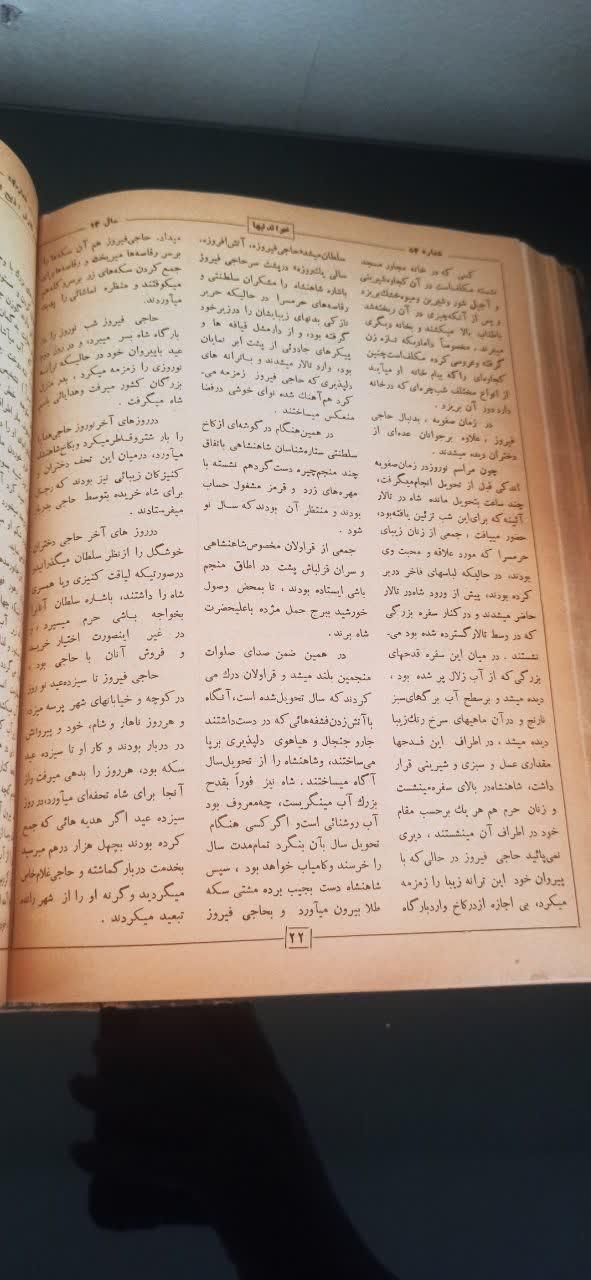 شماره ۵۴
خواندنیها
سال ۱۴
کسی که در خانه مجاور مسجد
نشسته مکلف‌است در آن کجاوه‌شیرینی
و آجیل شور وشیرین ومیوه‌خشک‌بریزد
و پس از آنکه‌چیزی در آن ریخته‌شد
باطناب بالا میکشند و بخانه ودیگری
میبرند . مخصوصاً دامادیکه تازه زن
گرفته وعروسی کرده مکلف‌است‌چنین
کجاوه‌ای راکه ببام خانه او میآیـد
از انواع مختلف شب‌چره‌ای که درخانه
دارد دور آن بریزد .
در زمان صفویه ، بدنبال حاجی
فیروز ، علاوه برجوانان عده‌ای از
دختران دیده میشدند .
چون مراسم نوروزدر زمان‌صفویه
اندکی قبل از تحویل انجام‌میگرفت،
چند ساعت بتحویل مانده شاه در تالار
آئینه که برای‌این شب تزئین یافته‌بود،
حضور مییافت ، جمعی از زنان زیبای
حرمسرا که مورد علاقه و محبت وی
بودند، در حالیکه لباسهای فاخر دربر
کرده بودند، پیش از ورود شاه‌در تالار
حاضر میشدند و در کنار سفره بزرگی
که در وسط تالارگسترده شده بود می‌-
نشستند . در میان این سفره قدحهای
بزرگی‌که از آب زلال پر شده بود ،
دیده میشد و برسطح آب برگهای‌سبز
نارنج و درآن ماهیهای سرخ رنگ‌زیبا
دیده میشد ، در اطراف این قـدحها
مقداری عسل و سبزی و شیرینی قرار
داشت، شاهنشاه‌در بالای سفره‌مینشست
و زنان حرم هم هر یك برحسب مقام
خود در اطراف آن مینشستند ، دیری
نمی‌پائید حاجی فیروز در حالی‌که با
پیروان خود این ترانه زیبا را زمزمه
میکرد، بی اجازه ازدرکاخ واردبارگاه
سلطان‌میشد«حاجی‌فیروزه، آتش‌افروزه،
سالی یك‌روزه» درپشت سرحاجی فیروز
باشاره شاهنشاه رامشگران سلطنتی و
رقاصه‌های حرمسرا در حالیکه حریر
نازکی بدنهای زیبایشان را درزیرخود
گرفته بود، و از دارمشل قیافه ها و
پیکرهای جادوئی از پشت ابر نمایان
بود، وارد تالار میشدند و بـاترانه های
دلپذیری که حاجی فیروز زمزمه می-
کرد هم‌آهنك شده نوای خوشی درفضا
منعکس میساختند .
در همین‌هنگام درگوشه‌ای‌ازکاخ
سلطنتی ستاره‌شناسان شاهنشاهی باتفاق
چند منجم‌چیره دست گردهم نشسته با
مهره‌های زرد و قرمز مشغول حساب
بودند و منتظر آن بودندکه سـال نو
شود .
جمعی از قراولان مخصوص‌شاهنشاهی
و سران قزلباش پشت در اطاق منجم
باشی ایستاده بودند ، تا بمحض وصول
خورشید ببرج حمل مژده باعلیحضرت
شاه برند .
در همین ضمن صدای صلوات
منجمین بلند میشد و قراولان درك می
کردند که سال تحویل‌شده است، آنگاه
باآتش‌زدن‌فشفه‌هائی‌که در دست‌داشتند
جارو جنجال و هیاهوی دلپذیری برپا
می‌ساختند، وشاهنشاه را از تحویل‌سال
آگاه میساختند . شاه نیز فوراً بقدح
بزرك آب مینگریست، چه‌معروف بود
آب روشنائی است‌و اگر کسی هنگام
تحویل سال بآن بنگرد تمام‌مدت سال
را خرسند وکامیاب خواهد بود ، سپس
شاهنشاه دست بجیب برده مشتی سکه
طلا بیرون میآورد و بحاجی فیروز
میداد. حاجی‌فیروز هم آن سکه‌ها را
برسر رقاصه‌ها میریخت و رقاصه‌ها برای
جمع کردن سکه‌های زر برسر وکله‌هم
میکوفتند و منظره تماشائی را پدید
میآوردند.
حاجی فیروز شب نوروز را در
بارگاه شاه بسر میبرد، و در روز دوم
عید باپیروان خود در حالیکه ترانه
نوروزی را زمزمه میکرد ، بدر منزل
بزرگان کشور میرفت وهدایائی بنام
شاه میگرفت .
درروزهای آخرنوروز حاجی‌هدایا
را بار شترو قاطرمیکرد وبکاخ‌شاهنشاه
میآورد، درمیان این تحف دختران و
کنیزکان زیبائی نیز بودند که رجال
برای شاه خریده بتوسط حاجی بدربار
میفرستادند .
درروز های آخر حاجی دختران
خوشگل را ازنظر سلطان میگذرانید
درصورتیکه لیاقت کنیزی ویا همسری
شاه را داشتند، باشـاره سلطان آنانرا
بخواجه باشی حرم میسپرد ، و
در غیر اینصورت اختیار خریـد
و فروش آنان با حاجی بود .
حاجی فیروز تا سیزده‌عید نو روز
درکوچه و خیابانهای شهر پرسه میزد
و هرروز ناهار و شام، خود و پیروانش
در دربار بودند و کار او تا سیزده عید
سکه بود، هرروز را بدهی میرفت واز
آنجا برای شاه تحفه‌ای میآورد،در روز
سیزده عید اگر هدیه هائی که جمع
کرده بودند بچهل هزار درهم میرسید
بخدمت دربارگماشته و حاجی‌غلام‌خاص
میگردید وگرنه او را از شهر رانده
تبعید میکردند .
۲۲